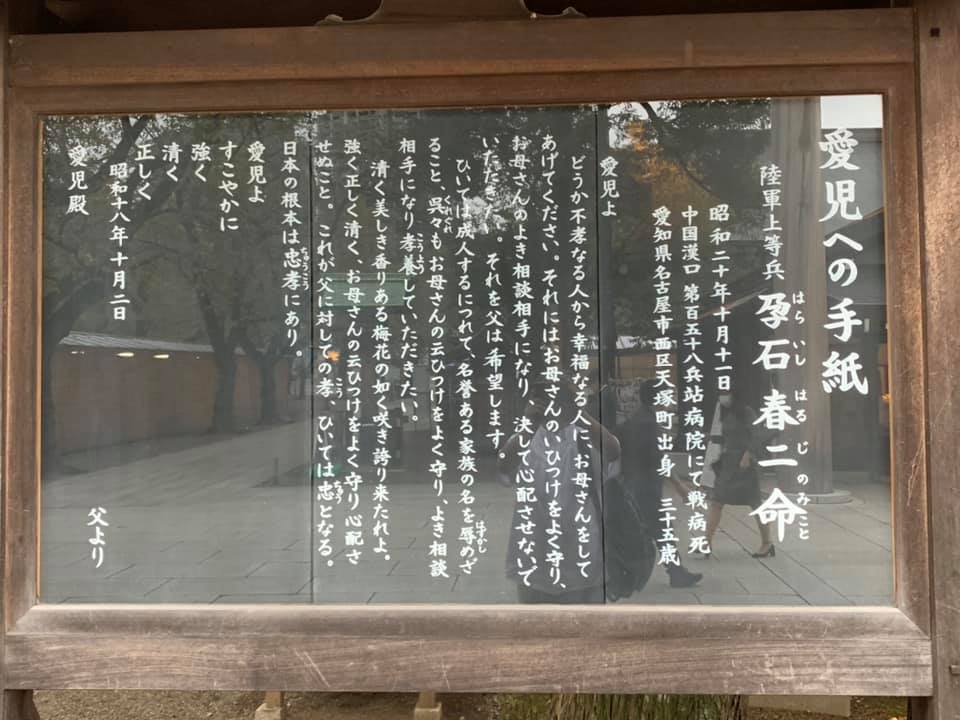 愛児への手紙
陸軍上等兵　孕石　春二　命
はらいし　はるじのみこと
昭和二十年十月十一日
中国漢口　第百五十八兵站病院にて戦病死
愛知県名古屋市西区天塚町出身　三十五歳
愛児よ
どうか不孝なる人から幸福なる人に、お母さんをして
あげてください。それにはお母さんのいひつけをよく守り、
お母さんのよき相談相手になり、決して心配させないで
いただきたい。それを父は希望します。
ひいては成人するにつれて、名誉ある家族の名を辱めざ
はずかし
ること、呉々もお母さんの云ひつけをよく守り、よき相談
くれぐれ
相手になり孝養していただきたい。
こうよう
清く美しき香りある梅花の如く咲き誇り来たれよ。
強く正しく清く、お母さんの云ひつけをよく守り心配さ
せぬこと。これが父に対しての孝、ひいては忠となる。
こう　ちゅう
日本の根本は忠孝にあり。
ちゅうこう
愛児よ
すこやかに
強く
清く
正しく
昭和十八年十月二日
父より
愛児殿